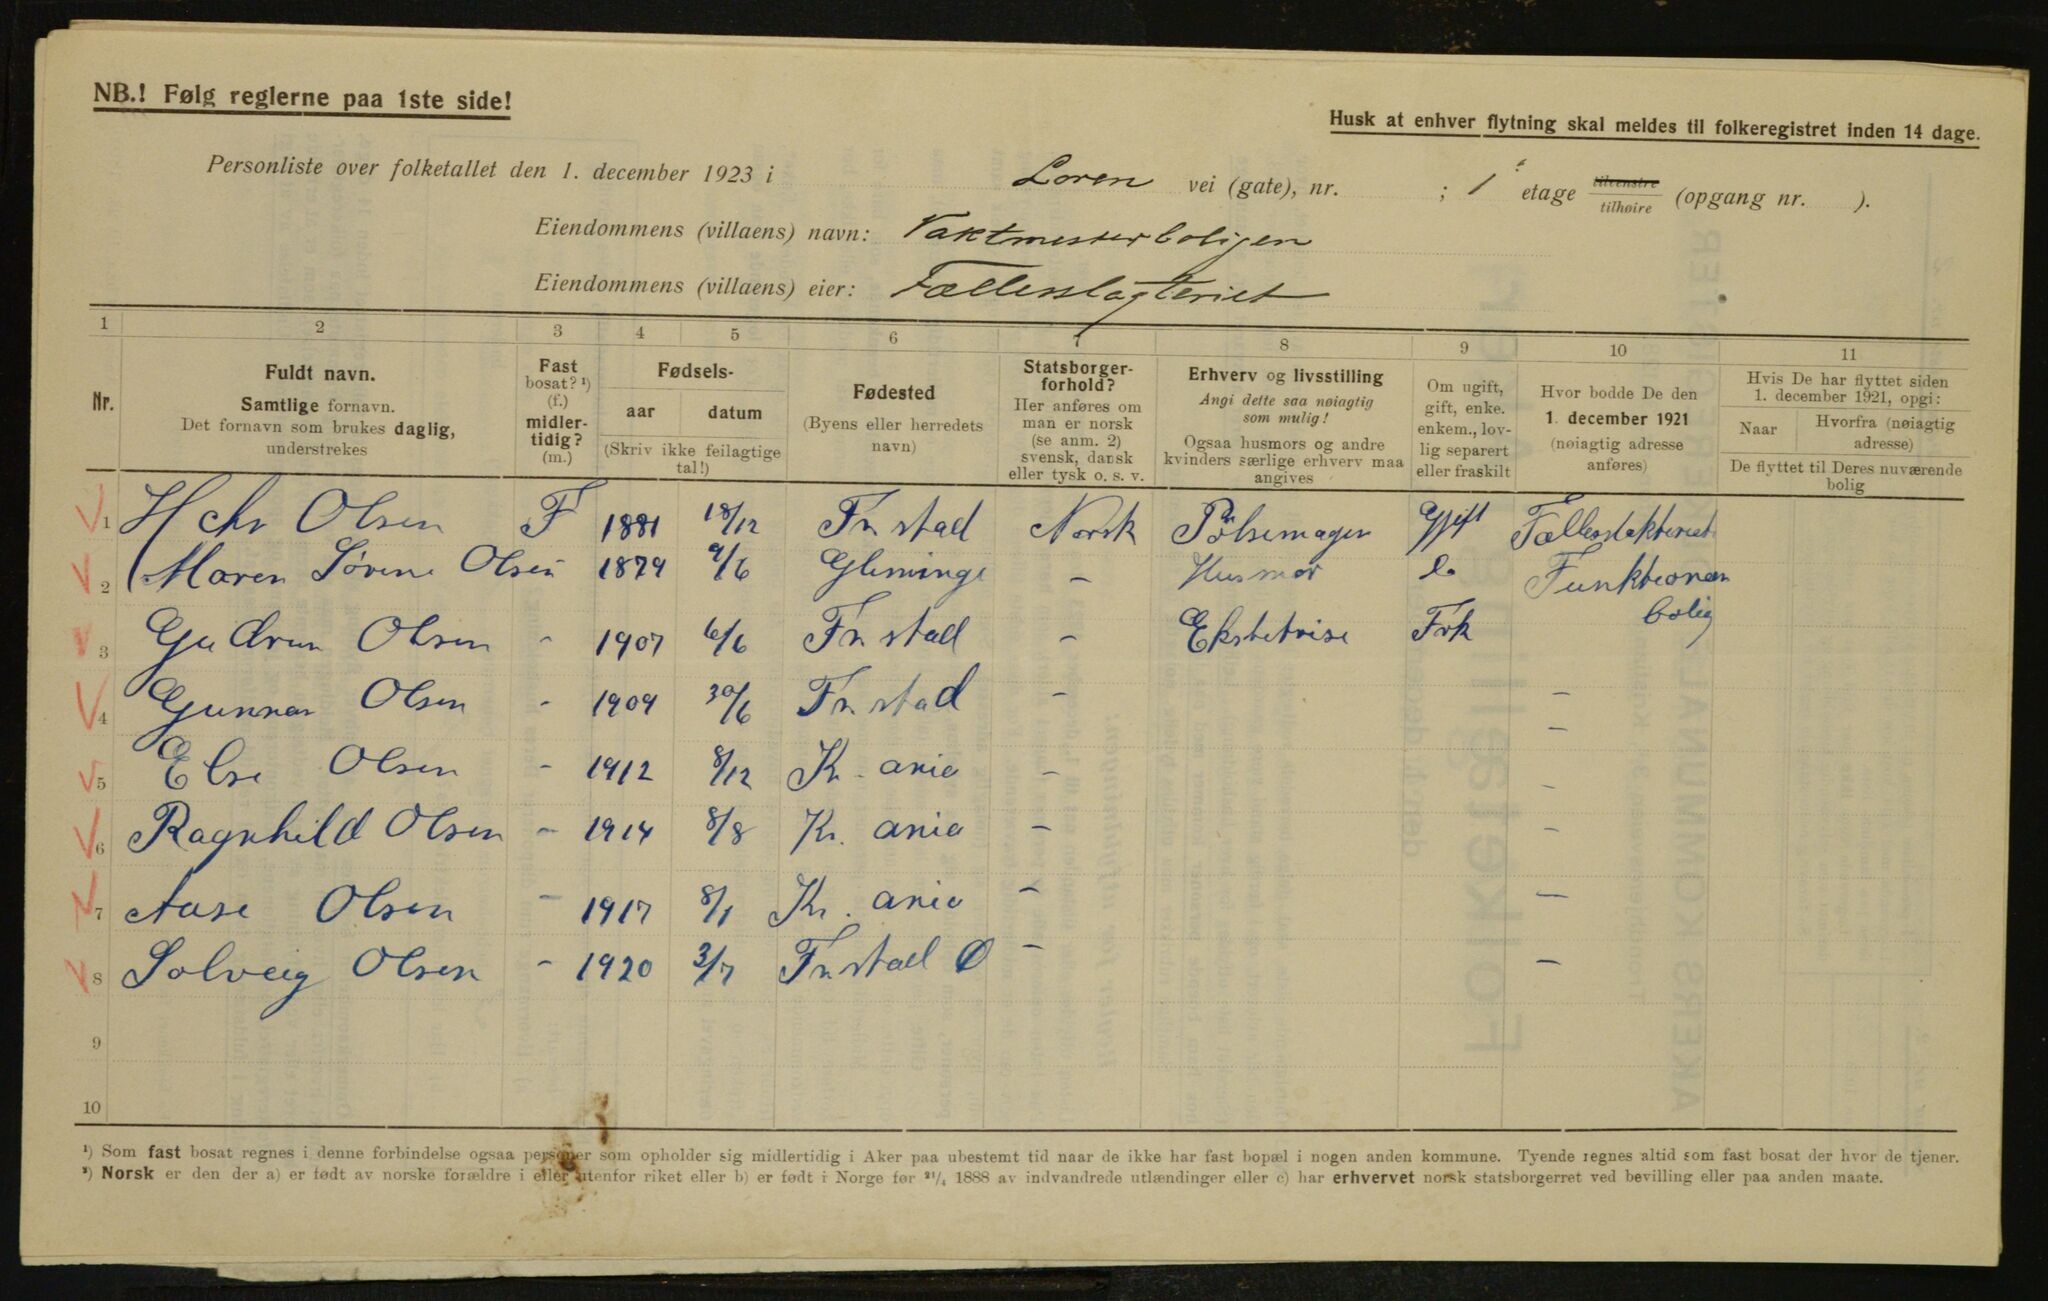 NB.! Følg reglerne paa 1ste side!
Husk at enhver flytning skal meldes til folkeregistret inden 14 dage.
Personliste over folketallet den 1. december 1923 i Loren vei (gate), nr. ; 1 etage tilvenstre tilhøire (opgang nr. ).
Eiendommens (villaens) navn: Vaktmesterboligen
Eiendommens (villaens) eier: Fællesslagteriet
1 2 3 4 5 6 7 8 9 10 11
Nr.
Fuldt navn.
Samtlige fornavn.
Det fornavn som brukes daglig,
understrekes
Fast
bosat? ¹)
(f.)
midler-
tidig?
(m.)
Fødsels-
aar datum
(Skriv ikke feilagtige
tal!)
Fødested
(Byens eller herredets
navn)
Statsborger-
forhold?
Her anføres om
man er norsk
(se anm. 2)
svensk, dansk
eller tysk o. s. v.
Erhverv og livsstilling
Angi dette saa nøiagtig
som mulig!
Ogsaa husmors og andre
kvinders særlige erhverv maa
angives
Om ugift,
gift, enke.
enkem., lov-
lig separert
eller fraskilt
Hvor bodde De den
1. december 1921
(nøiagtig adresse
anføres)
Hvis De har flyttet siden
1. december 1921, opgi:
Naar
Hvorfra (nøiagtig
adresse)
De flyttet til Deres nuværende
bolig
1 H Chr Olsen F 1881 18/12 Frstad Norsk Pølsemager Gift Fællesslakteriet
2 Maren Sørine Olsen 1879 9/6 Glemminge - Husmor Do Funktionær
bolig
3 Gudrun Olsen - 1907 6/6 Frstad - Frk
4 Gunnar Olsen - 1909 30/6 Frstad - -
5 Else Olsen - 1912 8/12 Kr. ania - -
6 Ragnhild Olsen - 1914 8/8 Kr. ania - -
7 Aase Olsen - 1917 8/1 Kr. ania - -
8 Solveig Olsen - 1920 3/7 Frstad Ø - -
9
10
¹) Som fast bosat regnes i denne forbindelse ogsaa personer som opholder sig midlertidig i Aker paa ubestemt tid naar de ikke har fast bopæl i nogen anden kommune. Tyende regnes altid som fast bosat der hvor de tjener.
²) Norsk er den der a) er født av norske forældre i eller utenfor riket eller b) er født i Norge før 21/4 1888 av indvandrede utlændinger eller c) har erhvervet norsk statsborgerret ved bevilling eller paa anden maate.